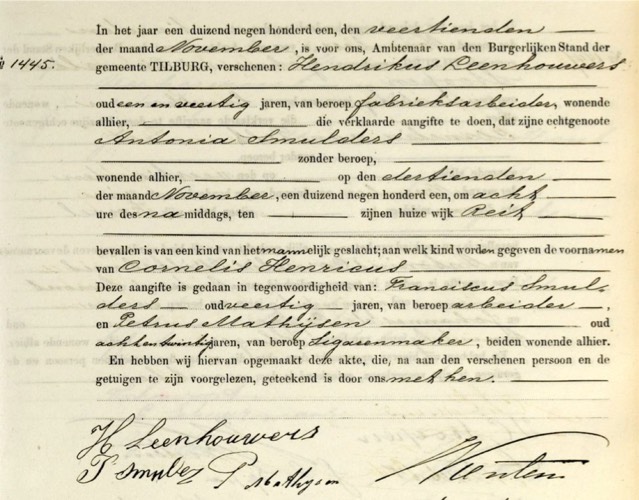 In het jaar een duizend negen honderd een, den veertienden
der maand November, is voor ons, Ambtenaar van den Burgerlijken Stand der
№ 1445. gemeente TILBURG, verschenen: Hendrikus Leenhouwers
oud een en veertig jaren, van beroep fabrieksarbeider, wonende
alhier, die verklaarde aangifte te doen, dat zijne echtgenoote
Antonia Smulders
zonder beroep,
wonende alhier, op den dertienden
der maand November, een duizend negen honderd een, om acht
ure des na middags, ten zijnen huize wijk Reit
bevallen is van een kind van het mannelijk geslacht; aan welk kind worden gegeven de voornamen
van Cornelis Henricus
Deze aangifte is gedaan in tegenwoordigheid van: Franciscus Smul-
ders oud veertig jaren, van beroep arbeider,
en Petrus Mathijsen oud
acht en twintig jaren, van beroep Sigarenmaker, beiden wonende alhier.
En hebben wij hiervan opgemaakt deze akte, die, na aan den verschenen persoon en de
getuigen te zijn voorgelezen, geteekend is door ons met hen.
H Leenhouwers
P Mathysen